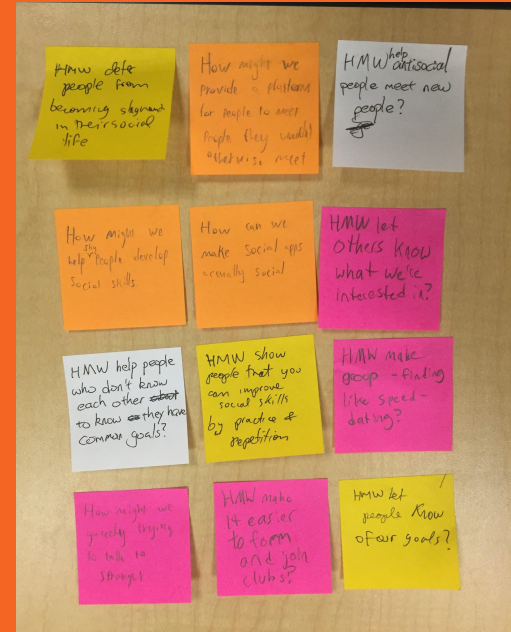 HMW deter
people from
becoming stagnant
in their social
life
How might we
Provide a platform
for people to meet
People they wouldn't
otherwise meet
HMW help antisocial
people meet new
people?
How might we
help shy People develop
Social skills
How can we
make Social apps
actually social
HMW let
others know
what we're
interested in?
HMW help people
who don't know
each other
to know they have
common goals?
HMW show
people that you
can improve
social skills
by practice &
repetition
HMW make
group-finding
like speed-
dating?
How might we
trying
to talk to
HMW make
it easier
to form
and join
clubs?
HMW let
people know
of our goals?